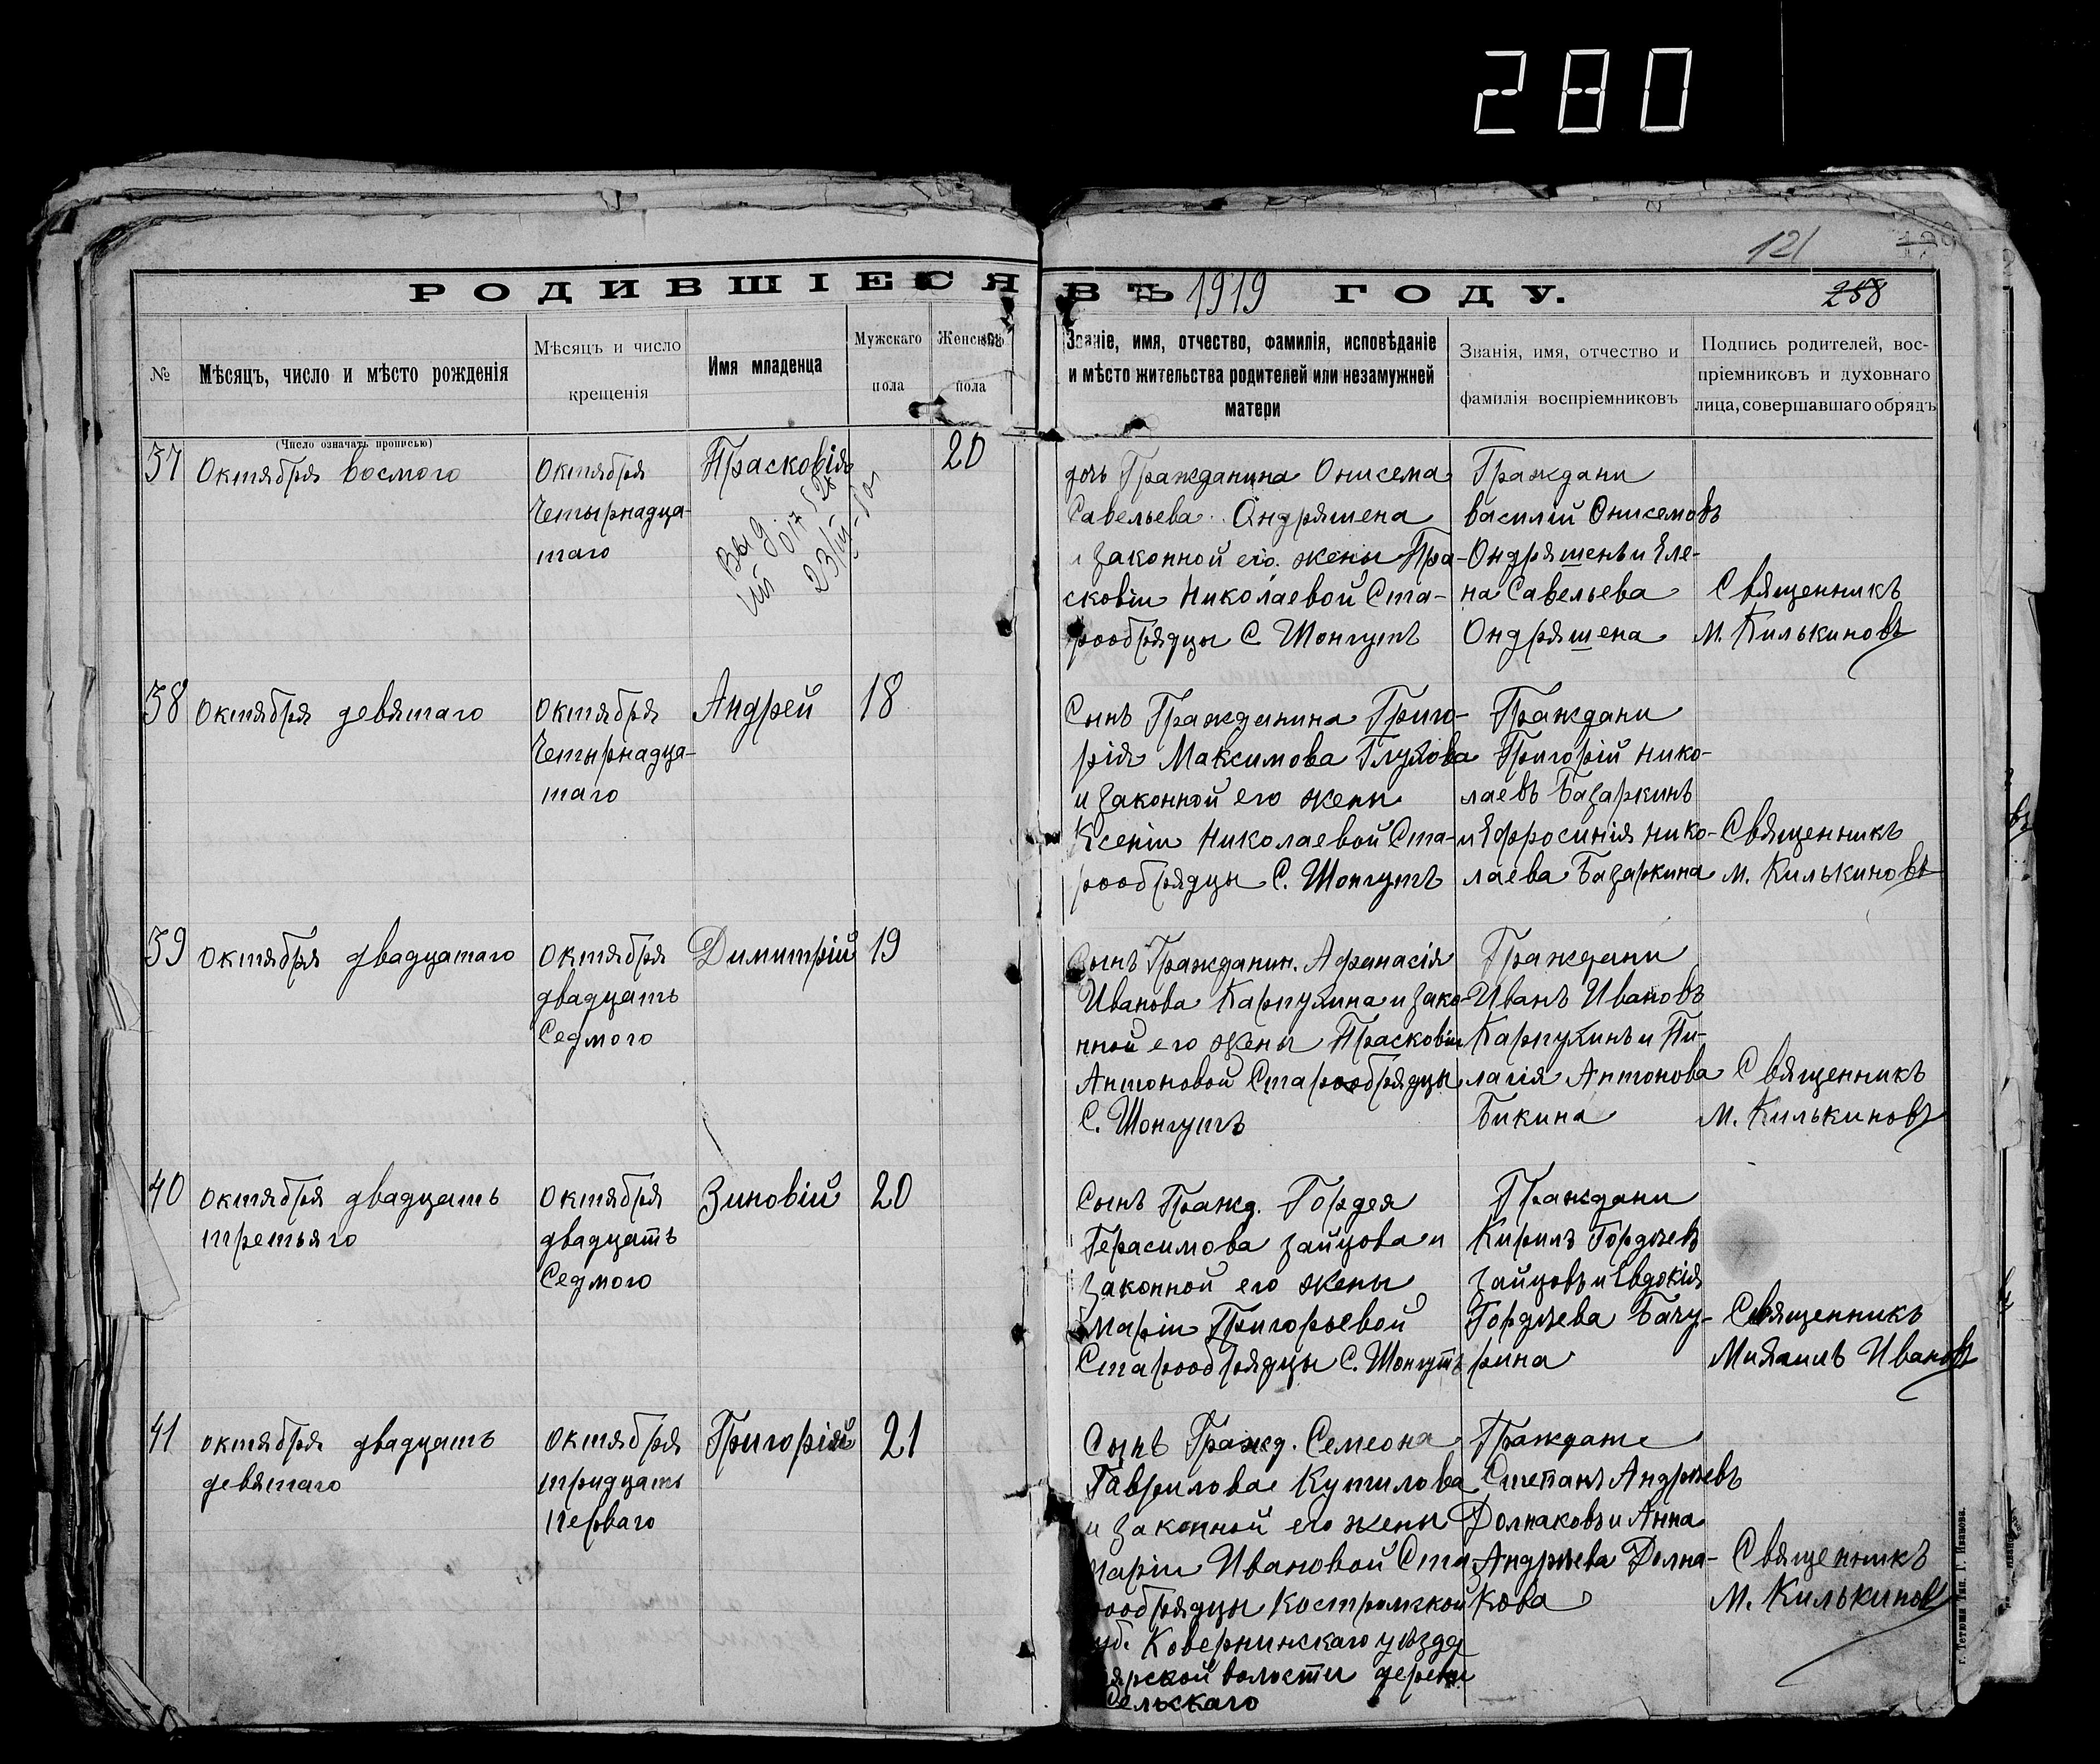 280
121
РОДИВШІЕСЯ ВЪ 1919 ГОДУ.
258
№
Мѣсяцъ, число и мѣсто рожденія
Мѣсяцъ и число
крещенія
Имя младенца
Мужскаго
пола
Женскаго
пола
Званіе, имя, отчество, фамилія, исповѣданіе
и мѣсто жительства родителей или незамужней
матери
Званія, имя, отчество и
фамилія воспріемниковъ
Подпись родителей, вос-
пріемниковъ и духовнаго
лица, совершавшаго обрядъ
(Число означать прописью)
37
Октября восмого
Октября
Четырнадца-
таго
Прасковія
20
дочь Гражданина Онисема
Савельева Ондряшена
и законной его жены Пра-
сковіи Николаевой Ста-
рообрядцы С Шонгутъ
Граждани
василій Онисемовъ
Ондряшенъ и Еле-
на Савельева
Ондряшена
Священникъ
М. Килькиновъ
38
Октября девятаго
Октября
Четырнадца-
таго
Андрей
18
Сынъ Гражданина Григо-
рія Максимова Глухова
и законной его жены
Ксеніи Николаевой Ста-
рообрядцы С. Шонгутъ
Граждани
Григорій Нико-
лаевъ Базаркинъ
и Ефросинія Нико-
лаева Базаркина
Священникъ
М. Килькиновъ
39
Октября двадцатаго
Октября
двадцать
Седмого
Димитрій
19
Сынъ Гражданин. Афанасія
Иванова Карпухина и зако-
нной его жены Прасковіи
Антоновой Старообрядцы
С. Шонгутъ
Граждани
Иванъ Ивановъ
Карпухинъ и Пи-
лагія Антонова
Бикина
Священникъ
М. Килькиновъ
40
Октября двадцать
третьяго
Октября
двадцать
Седмого
Зиновій
20
Сынъ Гражд. Гордея
Герасимова Зайцова и
Законной его жены
Маріи Григорьевой
Старообрядцы С. Шонгутъ
Граждани
Кирилъ Гордѣевъ
Зайцовъ и Евдокія
Гордѣева Бачу-
рина
Священникъ
Михаилъ Ивановъ
41
октября двадцать
девятаго
Октября
тридцать
перваго
Григорій
21
Сынъ Гражд. Семеона
Гаврилова Кутилова
и законной его жены
Маріи Ивановой Ста
рообрядцы Костромской
губ. Ковернинскаго уѣзда
волости
Сельскаго
Граждане
Степанъ Андрѣевъ
Долнаковъ и Анна
Андрѣева Долна-
кова
Священникъ
М. Килькиновъ